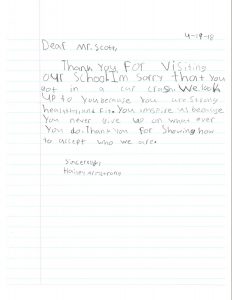 4-19-18
Dear Mr. Scott,
Thank you For Visiting
our School Im Sorry that you
got in a car crash We look
up to you because you are strong
healthy and Fit. You inspire us because
You never give up on what ever
you do. Thank you For Showing how
to accept who we are.
Sincerely,
Armstrong